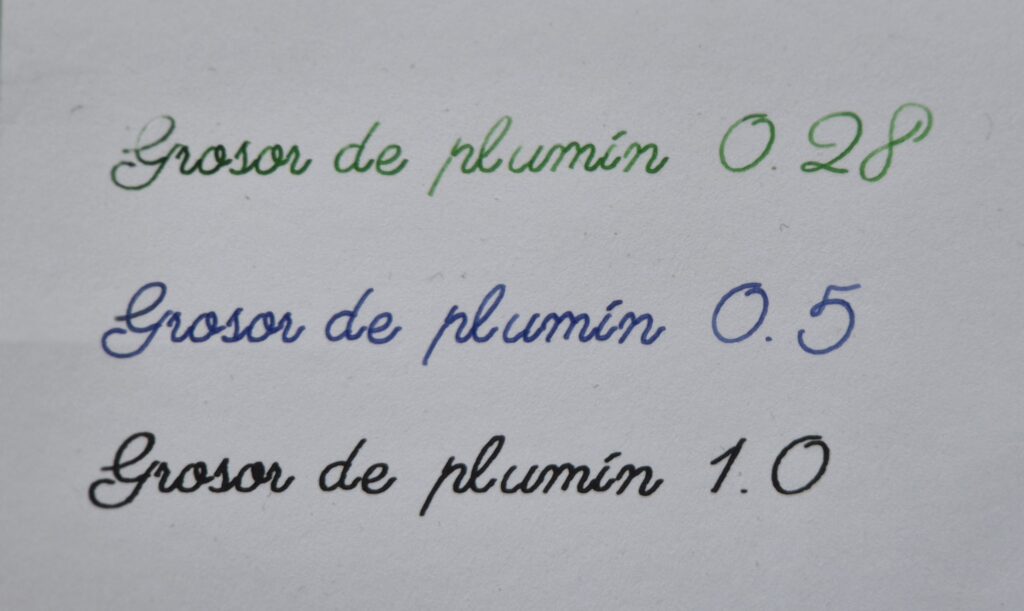 Grosor de plumín 0.28
Grosor de plumín 0.5
Grosor de plumín 1.0